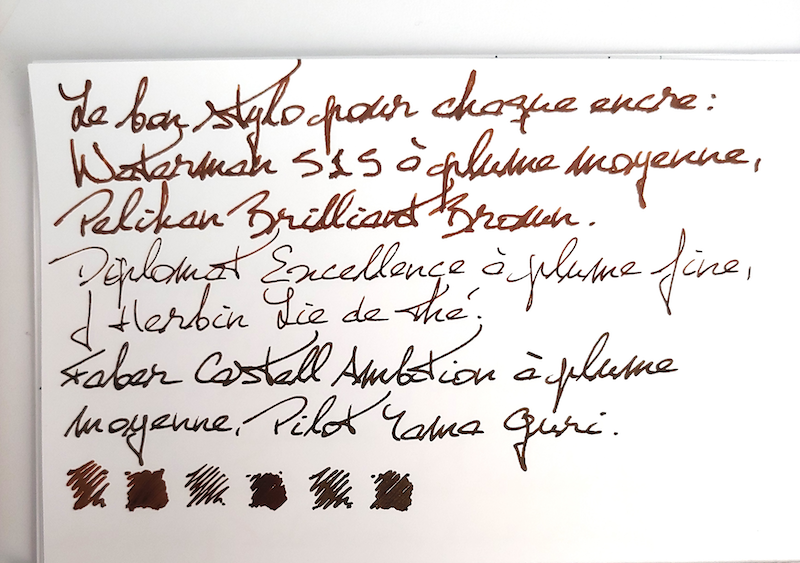 Le bon stylo pour chaque encre :
Waterman 515 à plume moyenne,
Pelikan Brilliant Brown.
Diplomat Excellence à plume fine,
J Herbin Lie de thé.
Faber Castell Ambition à plume
moyenne, Pilot Yama guri.